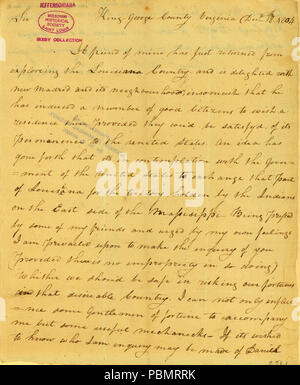 JEFFERSONIANA
MISSOURI
HISTORICAL
SOCIETY
SAINT LOUIS
BIXBY COLLECTION
Sir King George County Virginia
A friend of mine has just returned from
exploring the Louisiana Country and is delighted with
new Madrid and its neighbourhood, insomuch that he
has induced a number of good Citizens to wish a
residence there provided they could be satisfyd. of its
permanence to the united States. An idea has
gone forth that it is in contemplation with the Govern
-ment of the United States to exchange that part
of Louisiana for the territory holden by the Indians
on the East side of the Massisippi. Being prefsed
by some of my friends and urged by my own feelings
I am prevailed upon to make the inquiry of you
(provided there is no impropriety in so doing)
Whether we should be safe in risking our fortunes
in that desireable Country. I can not only influe
-nce some Gentlemen of fortune to accompany
me but some useful mechanicks. If its wished
to know who I am inquiry may be made of
alamy
Image ID: PBMRRK
www.alamy.com